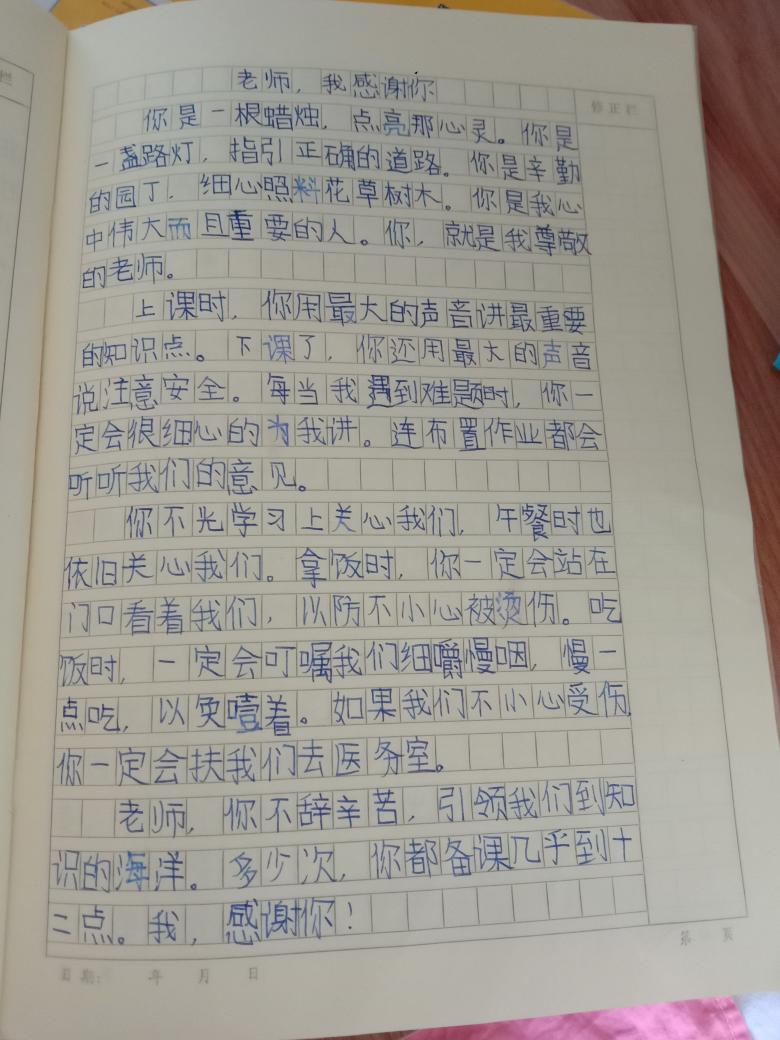 老师，我感谢你
修正栏
你是一根蜡烛，点亮那心灵。你是
一盏路灯，指引正确的道路。你是辛勤
的园丁，细心照料花草树木。你是我心
中伟大而且重要的人。你，就是我尊敬
的老师。
上课时，你用最大的声音讲最重要
的知识点。下课了，你还用最大的声音
说注意安全。每当我遇到难题时，你一
定会很细心的为我讲。连布置作业都会
听听我们的意见。
你不光学习上关心我们，午餐时也
依旧关心我们。拿饭时，你一定会站在
门口看着我们，以防不小心被烫伤。吃
饭时，一定会叮嘱我们细嚼慢咽，慢一
点吃，以免噎着。如果我们不小心受伤，
你一定会扶我们去医务室。
老师，你不辞辛苦，引领我们到知
识的海洋。多少次，你都备课几乎到十
二点。我，感谢你！
日期： 年 月 日
第 页